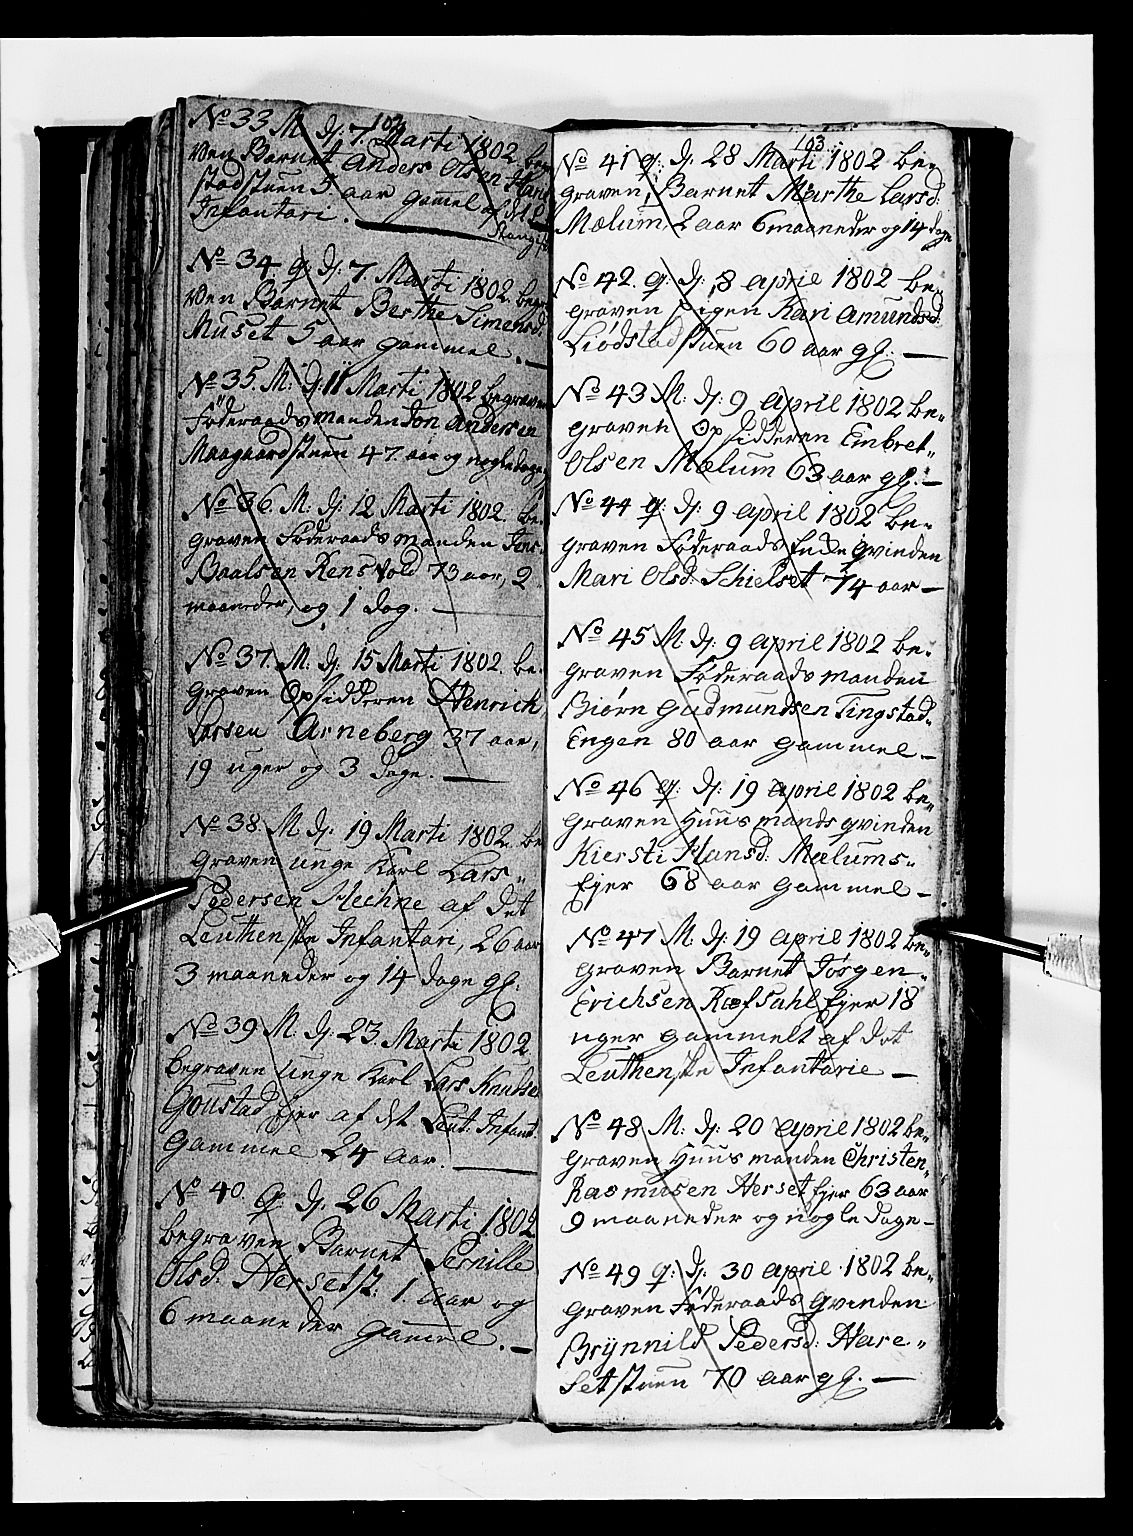 102
No 33 M. dj: 7. Marti 1802. begra
ven Barnet Anders Olsen
stadstuen 5 aar gamel af det
Infantari.
No 34 q: dj: 7. Marti 1802. begra
ven Barnet Berthe Simensd:
Muset 5 aar gammel.
No 35. M: dj: 11 Marti 1802 begraven
Föderaadsmanden Jon Andersen
Maagaardstuen 47 aar og nogle dage
No 36. M. dj. 12 Marti 1802. be-
graven Föderaadsmanden Jens
Baalsen Rensvold 73 aar, 2
maaneder, og 1 dag.
No 37. M. dj. 15 Marti 1802. be-
graven Opsidderen Henrich
Larsen Arneberg 37 aar,
19 uger og 3 dage.
No 38. M dj. 19 Marti 1802. be
graven unge Karl Lars-
Pedersen af det
Leuthenske Infantari, 26 aar
3 maaneder og 14 dage gl:
No 39 M. dj. 23. Marti 1802
begraven unge Karl Lars Knudse
Goustad Ejer af det Leut: Infant:
gammel 24 aar.
No 40. q: dj. 26 Marti 1802
begraven Barnet Pernille
Olsd: Hersetst: 1. aar og
6 maaneder gamel.
103
No 41 q: dj. 28 Marti 1802 be-
graven Barnet Marthe Larsd:
Mælum, 2 aar 6 maaneder og 14 dage
No 42. q: dj. 8 april 1802 be-
graven Pigen Kari Amundsd:
Liødstadstuen 60 aar gl.
No 43 M: dj: 9 april 1802 be-
graven Opsidderen Embret-
Olsen Mælum 63 aar gl:
No 44 q: dj: 9 april 1802 be-
graven Føderaads Enke qvinden
Mari Olsd: Schielset 74 aar
No 45 M: dj. 9 april 1802 be-
graven Føderaads manden
Biørn Gudmundsen Tingstad-
Engen 80 aar gammel
No 46 q: dj: 19 april 1802 be-
graven Huusmands qvinden
Kiersti Hansd: Mælums-
Ejer 68 aar gammel
No 47 M dj: 19 april 1802 be-
graven Barnet Jørgen
Erichsen Ræfsahl Ejer 18
uger gammelt af det
Leuthenske Infantarie
No 48 M: dj: 20 april 1802 be-
graven Huusmanden Christen-
Rasmusen Herset Ejer 63 aar
9 maaneder og nogle dage
No 49 q: dj. 30 april 1802 be-
graven Føderaads Qvinden
Brÿnnild Pedersd: Hare-
setstuen 70 aar gl.